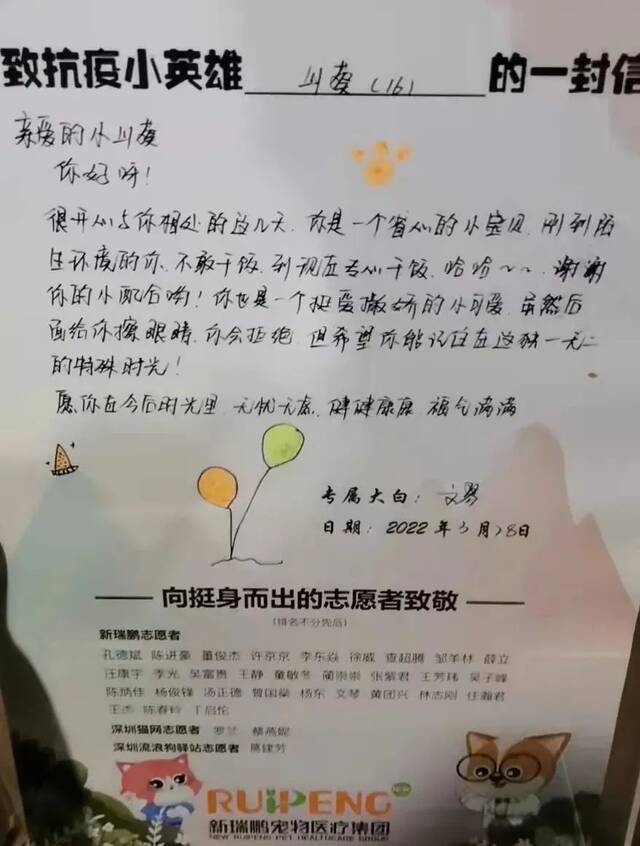 致抗疫小英雄 川葵(16) 的一封信
亲爱的小川葵
你好呀!
很开心与你相处的这几天,你是一个省心的小宝贝,刚到陌
生环境的你,不敢干饭,到现在专心干饭,哈哈~~,谢谢
你的小配合哟!你也是一个挺爱撒娇的小可爱,虽然后
面给你擦眼睛,你会拒绝,但希望你能记住在这独一无二
的特殊时光!
愿你在今后时光里,无忧无虑,健健康康,福气满满
专属大白:文
日期:2022年3月28日
向挺身而出的志愿者致敬
(排名不分先后)
新瑞鹏志愿者
孔德斌 陈进豪 董俊杰 许京京 李东焱 徐威 查超腾 邹羊林 薛立
汪康宇 季光 吴富贵 王静 童敬冬 蔺崇崇 张紫君 王芳玮 吴子峰
陈炳佳 杨俊锋 汤正德 曾国燊 杨东 文琴 黄团兴 林志刚 任瀚君
王杰 陈春玲 丁启伦
深圳猫网志愿者 罗兰 蔡燕妮
深圳流浪狗驿站志愿者 聂建芳
RUiPENG
新瑞鹏宠物医疗集团
NEW RUIPENG PET HEALTHCARE GROUP